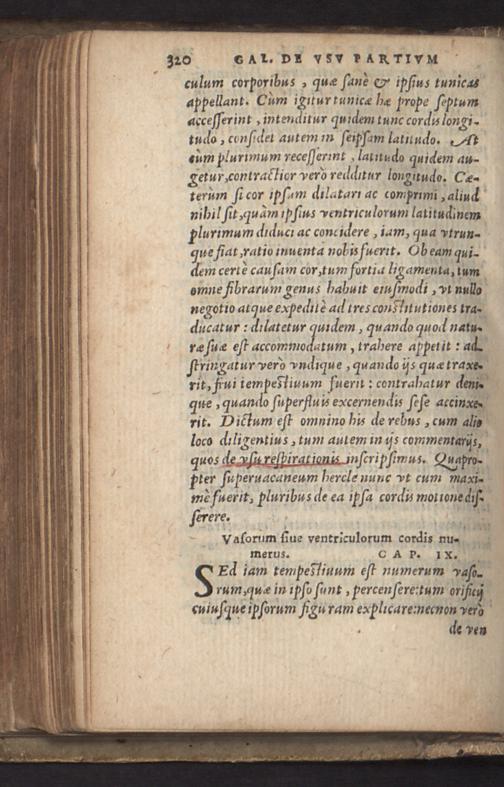 320 GAL. DE VSV PARTIVM
culum corporibus, quæ sanè & ipsius tunicas
appellant. Cùm igitur tunicæ hæ prope septum
accesserint, intenditur quidem tunc cordis longi-
tudo, considet autem in seipsam latitudo. At
cùm plurimum recesserint, latitudo quidem au-
getur, contractior verò redditur longitudo. Cæ-
terùm si cor ipsam dilatari ac comprimi, aliud
nihil sit, quàm ipsius ventriculorum latitudinem
plurimum diduci ac concidere, iam, qua vtrun-
que fiat, ratio inuenta nobis fuerit. Ob eam qui-
dem certè causam cor, tum fortia ligamenta, tum
omne fibrarum genus habuit eiusmodi, vt nullo
negotio atque expeditè ad tres constitutiones tra-
ducatur: dilatetur quidem, quando quod natu-
ræ suæ est accommodatum, trahere appetit: ad-
stringatur verò vndique, quando ijs quæ traxe-
rit, frui tempestiuum fuerit: contrahatur deni-
que, quando superfluis excernendis sese accinxe-
rit. Dictum est omnino his de rebus, cum alio
loco diligentius, tum autem in ijs commentarijs,
quos de vsu respirationis inscripsimus. Quapro-
pter superuacaneum hercle nunc vt cum maxi-
mè fuerit, pluribus de ea ipsa cordis motione dis-
serere.
Vasorum siue ventriculorum cordis nu-
merus. CAP. IX.
SEd iam tempestiuum est numerum vaso-
rum, quæ in ipso sunt, percensere: tum orificij
cuiusque ipsorum figuram explicare: necnon verò
de ven